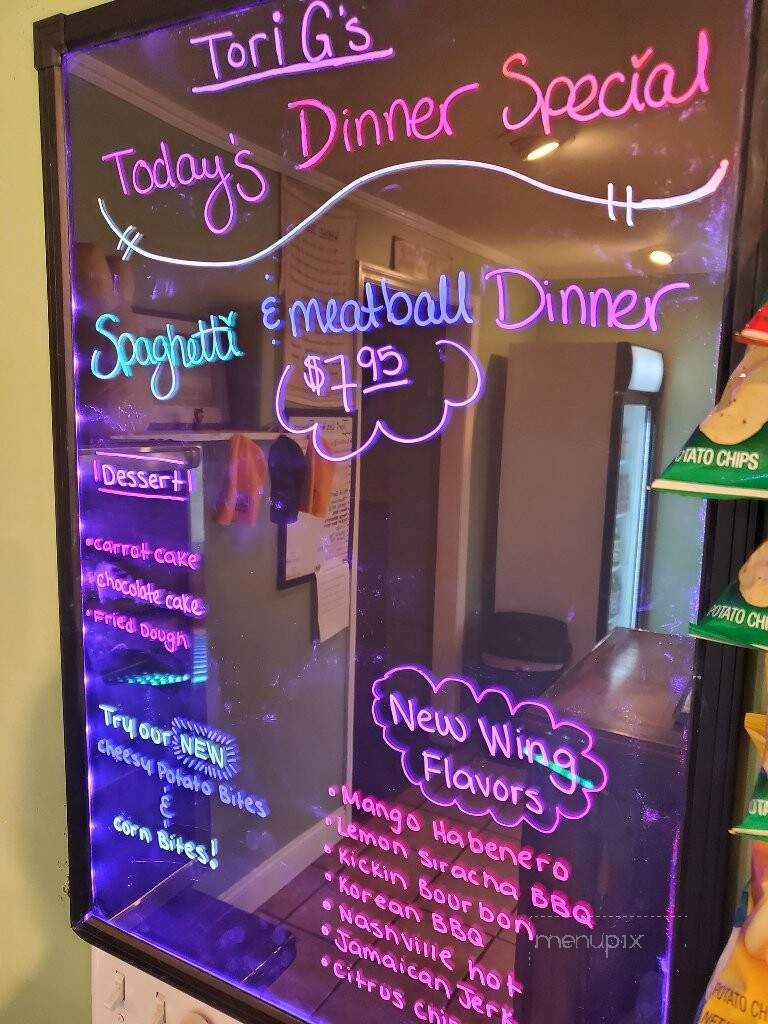 Tori G's
Today's Dinner Special
Spaghetti & meatball Dinner
$7.95
Dessert
• carrot cake
• chocolate cake
• Fried Dough
Try our NEW
cheesy Potato Bites
&
corn Bites!
New Wing
Flavors
• Mango Habenero
• Lemon Siracha BBQ
• Kickin Bourbon
• Korean BBQ
• Nashville hot
• Jamaican Jerk
• Citrus
POTATO CHIPS
POTATO
POTATO
menupix